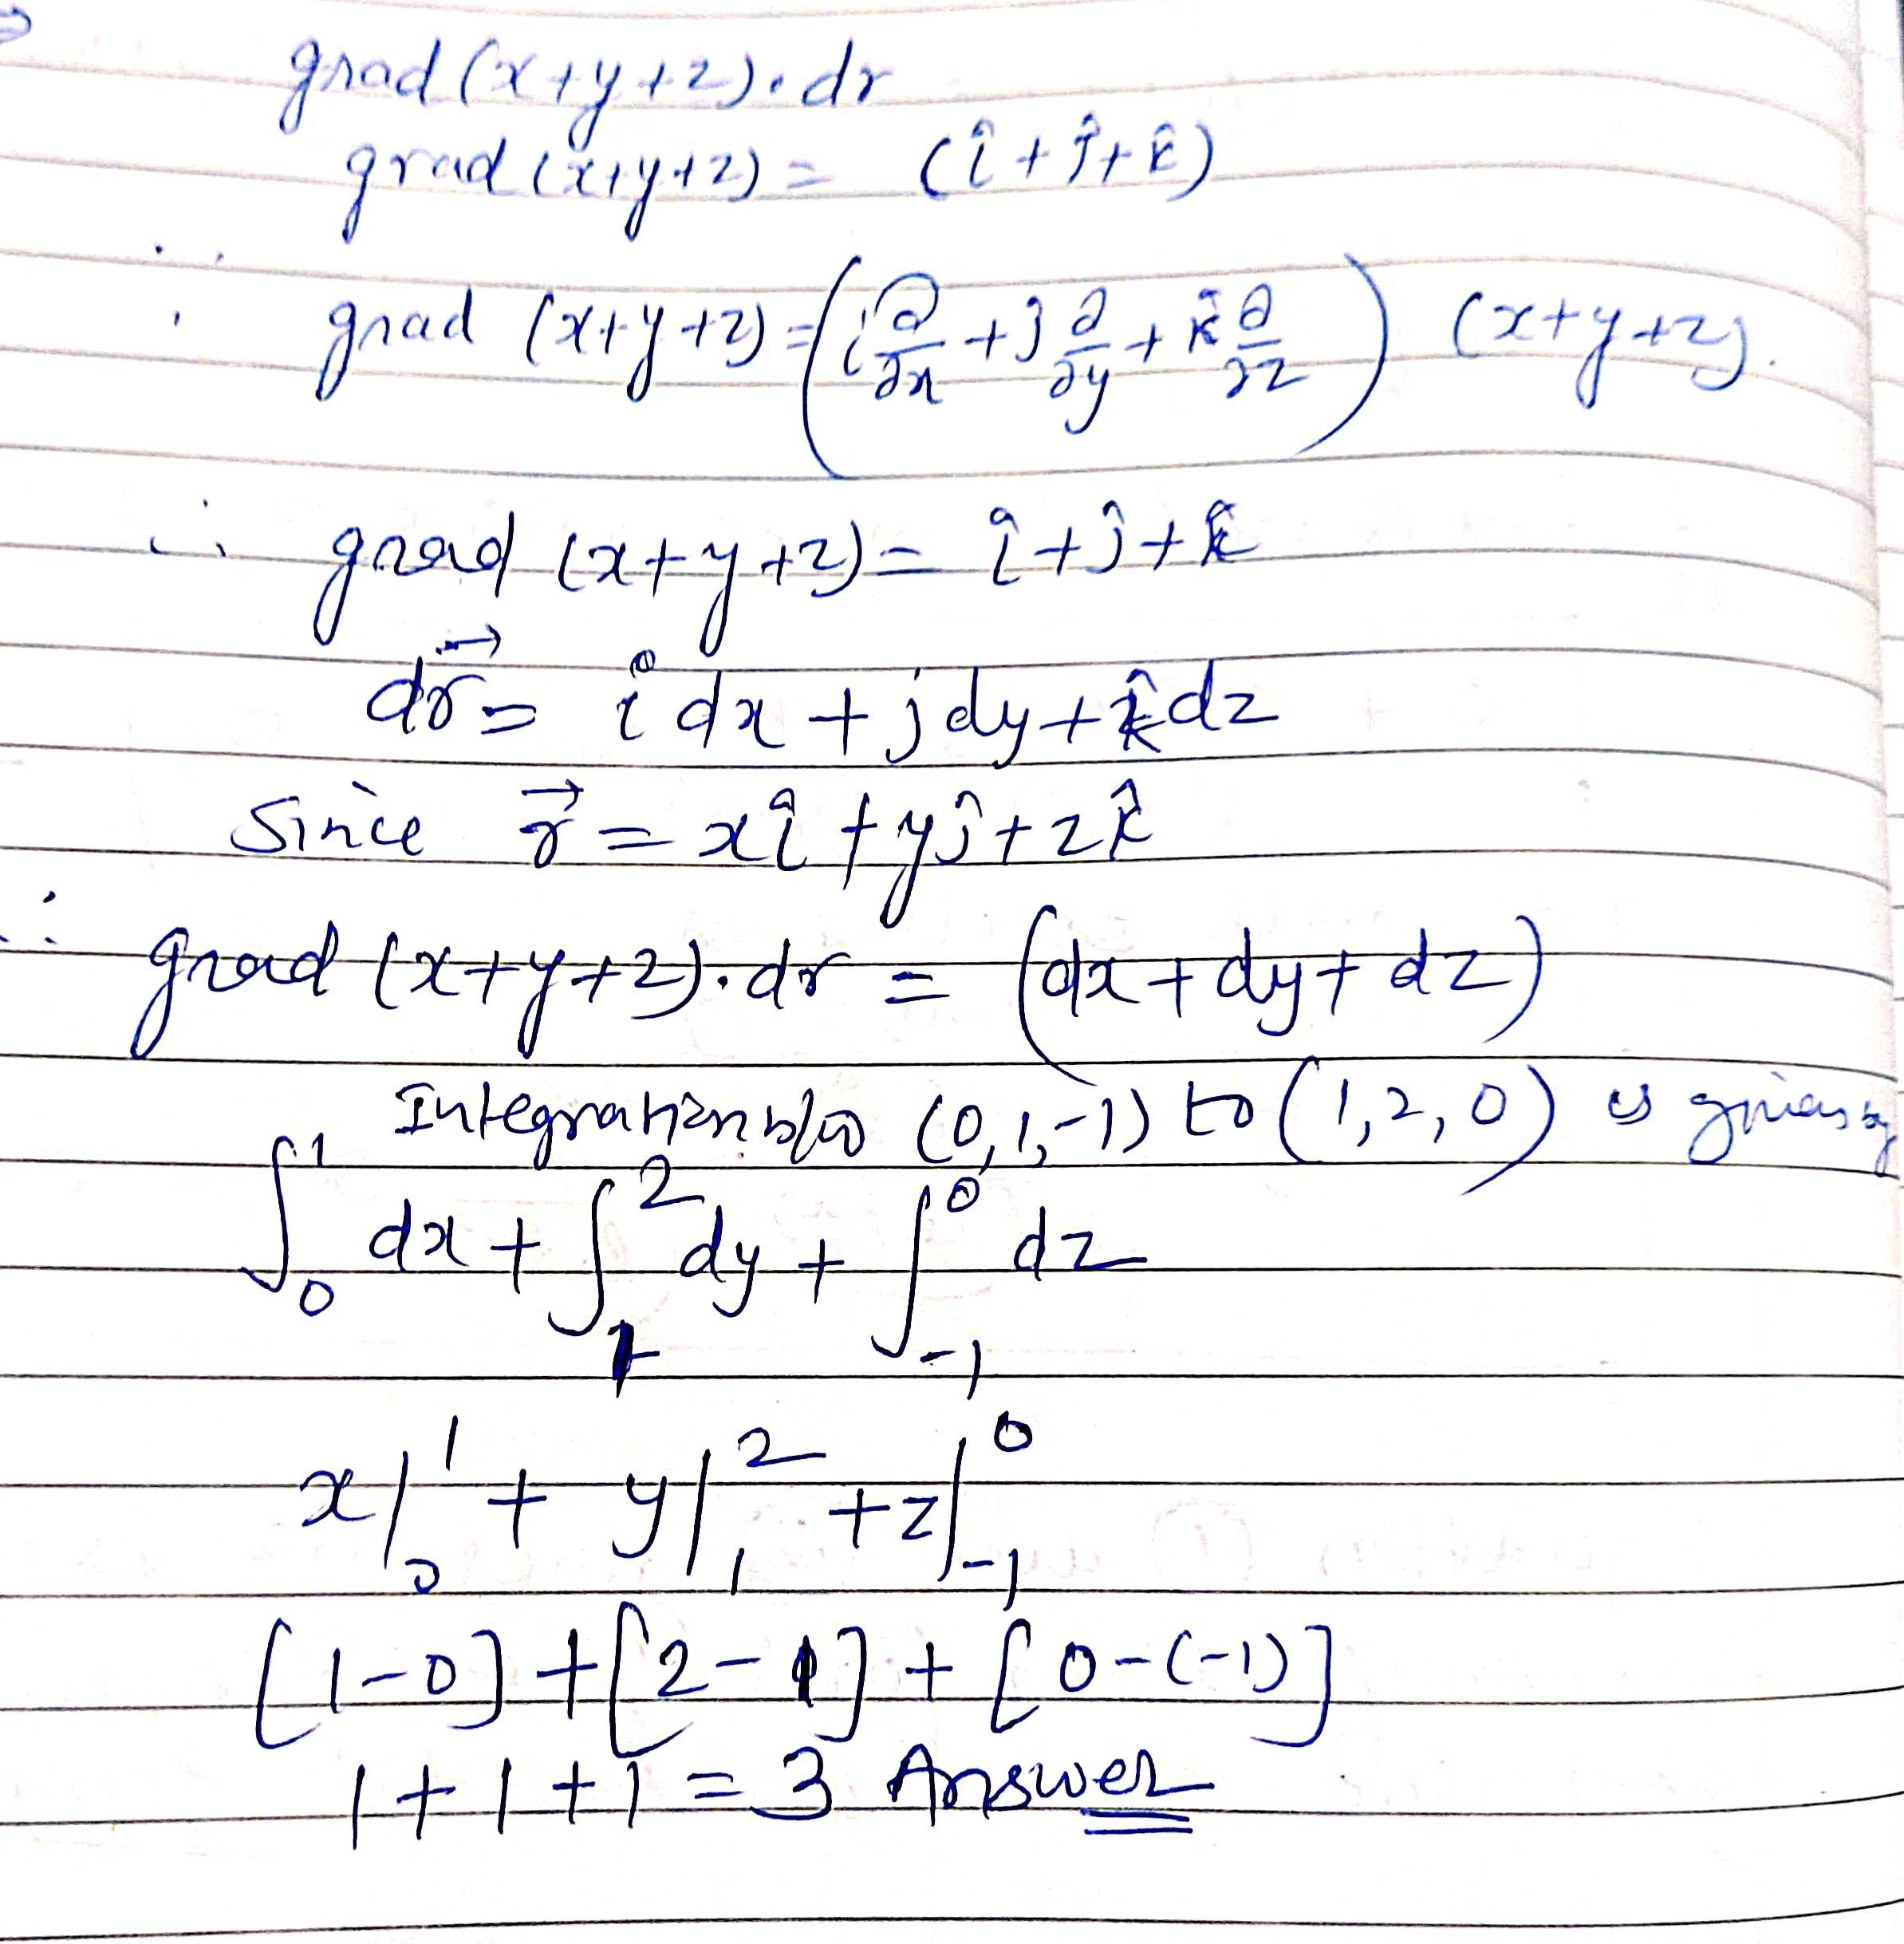 grad (x+y+z).dr
grad (x+y+z) = (î + ĵ + k̂)
∴ grad (x+y+z) = (i ∂/∂x + j ∂/∂y + k̂ ∂/∂z) (x+y+z).
∴ grad (x+y+z) = î + ĵ + k̂
dr⃗ = i dx + j dy + k̂ dz
Since r⃗ = xî + yĵ + zk̂
∴ grad (x+y+z).dr = (dx + dy + dz)
Integration b/w (0,1,-1) to (1,2,0) is given by
∫₀¹ dx + ∫₁² dy + ∫₋₁⁰ dz
x|₀¹ + y|₁² + z|₋₁⁰
[1-0] + [2-1] + [0-(-1)]
1+1+1 = 3 Answer